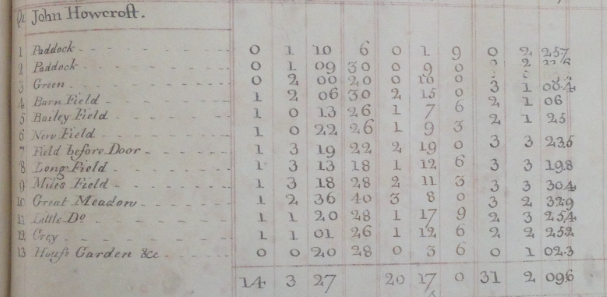 John Howcroft.
1 Paddock 0 1 10 6 0 1 9 0 2 257
2 Paddock 0 1 09 30 0 9 0 0 2
3 Green 0 2 00 20 0 10 0
4 Barn Field 1 2 06 30 2 15 0 3 1 004
5 Bailey Field 1 0 13 26 1 7 6 2 1 06
6 New Field 1 0 22 26 1 9 3 2 1 25
7 Field before Door 1 3 19 22 2 19 0 3 3 235
8 Long Field 1 3 13 18 1 12 6 3 3 198
9 Miles Field 1 3 18 28 2 11 3 3 3 304
10 Great Meadow 1 2 36 40 3 8 0 3 2 329
11 Little Do 1 1 20 28 1 17 9 2 3 254
12 Croy 1 1 01 26 1 12 6 2 2 252
13 House Garden &c 0 0 20 28 0 3 6 0 1 023
14 3 27 20 17 0 31 2 096